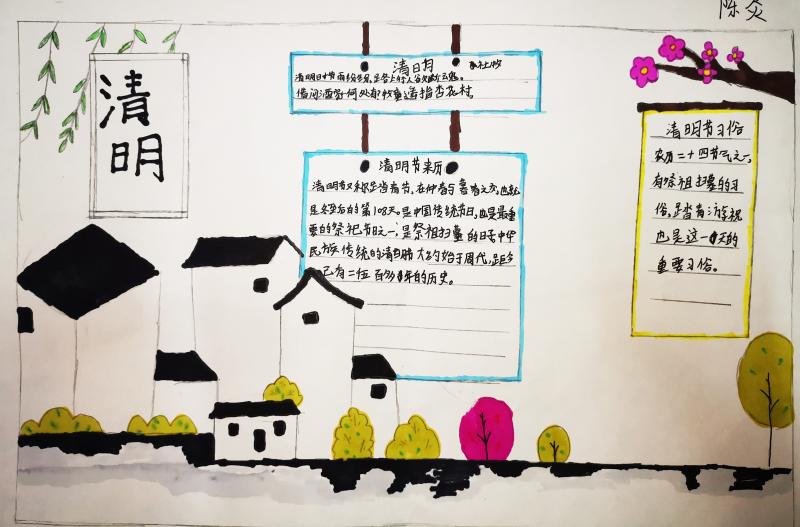 陈炎
清明
清明 杜牧
清明时节雨纷纷,路上行人欲断魂。
借问酒家何处有牧童遥指杏花村。
清明节来历
清明节又称踏青节,在仲春与暮春之交,也就
是冬至后的第108天。是中国传统节日,也是最重
要的祭祀节日之一,是祭祖扫墓的日子中华
民族传统的清明节大约始于周代,距今
已有二千五百多年的历史。
清明节习俗
农历二十四节气之一,
有祭祖扫墓的习
俗,踏青游玩
也是这一天的
重要习俗。